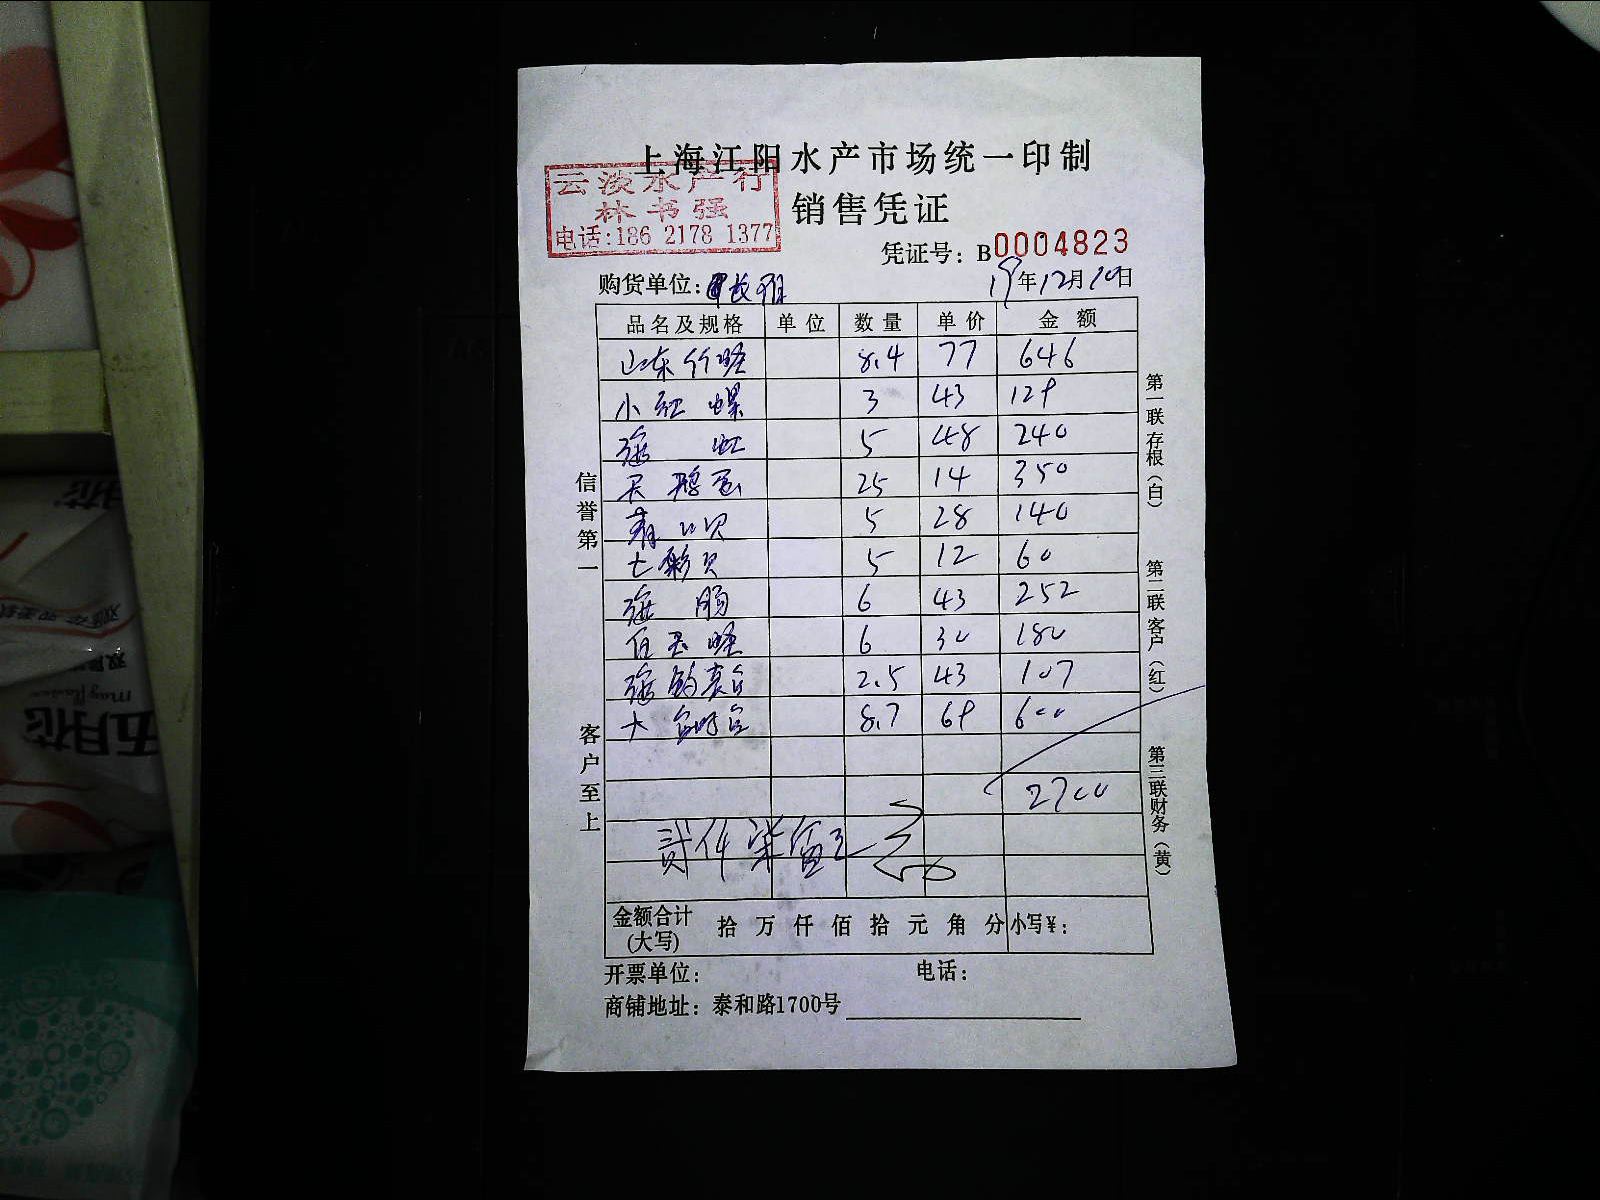 上海江阳水产市场统一印制
云淡水产行
林书强
电话:186 2178 1377
销售凭证
凭证号: B0004823
购货单位:
19年12月10日
品名及规格 单位 数量 单价 金额
山东竹蛏 8.4 77 646
小红螺 3 43 129
海虹 5 48 240
天鹅蛋 25 14 350
青口贝 5 28 140
七彩贝 5 12 60
海肠 6 43 252
白玉蛏 6 30 180
海 2.5 43 107
大 8.7 69 600
2700
贰仟柒佰元
金额合计(大写) 拾 万 仟 佰 拾 元 角 分 小写¥:
开票单位: 电话:
商铺地址: 泰和路1700号
信誉第一
客户至上
第一联存根(白)
第二联客户(红)
第三联财务(黄)
五月花